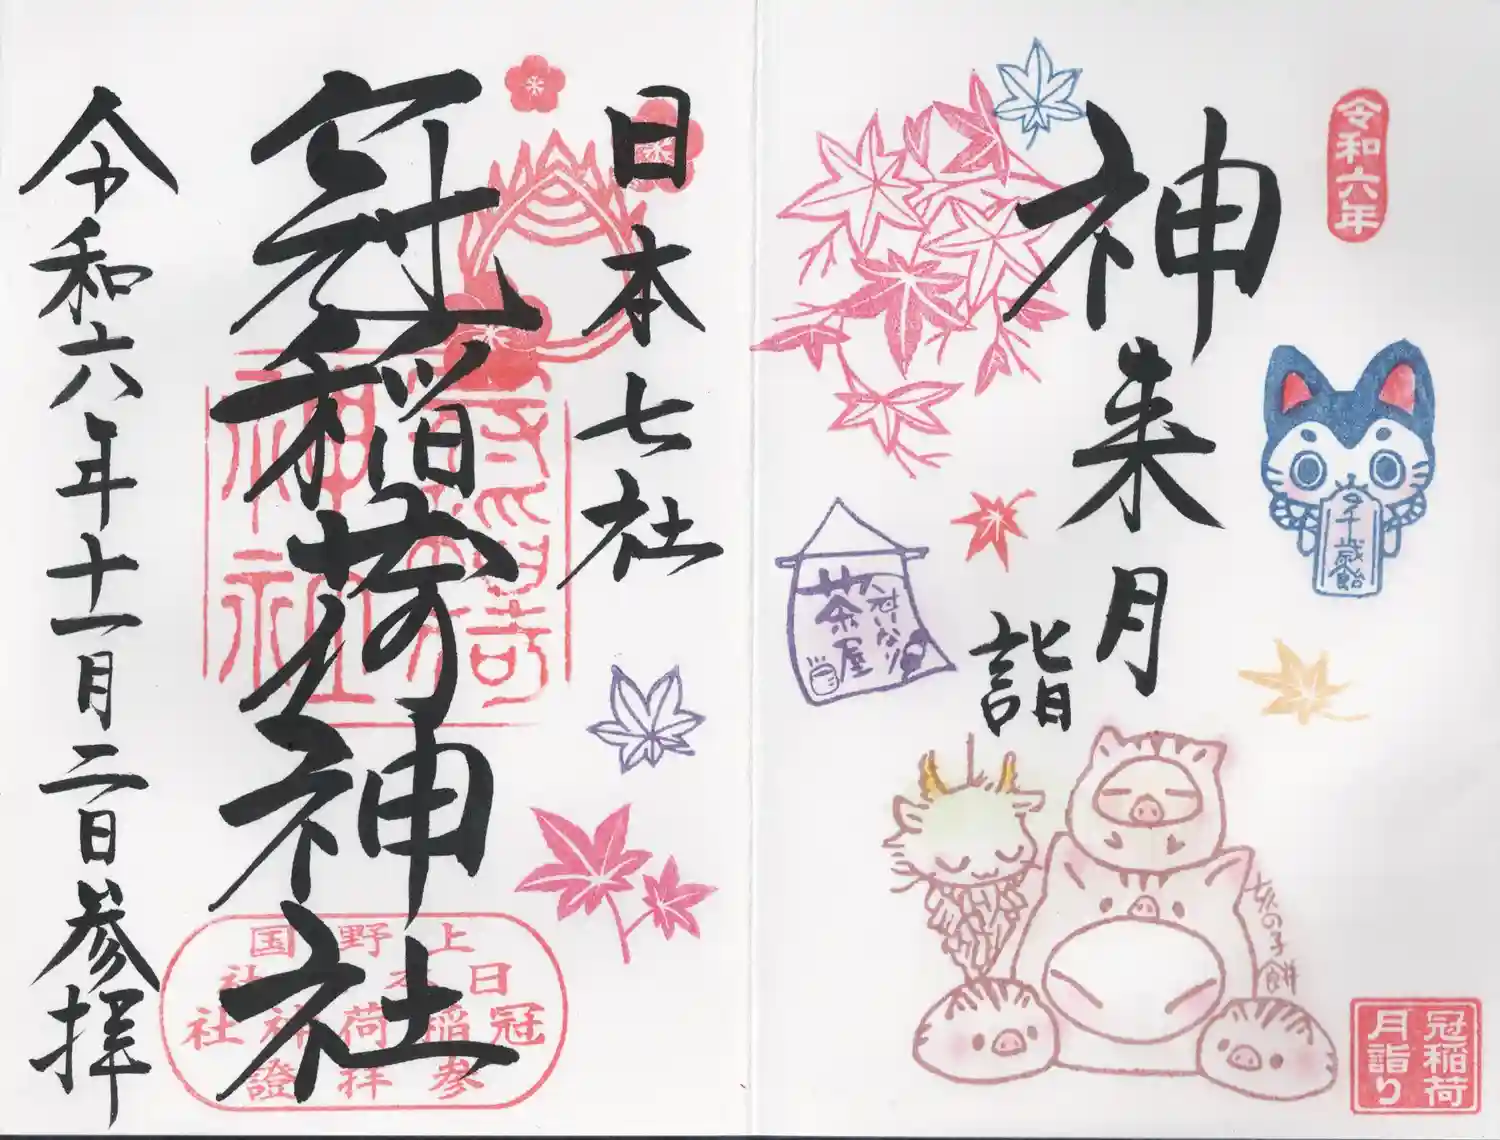 令和六年
神来月
詣
千歳飴
冠いなり
茶屋
亥の子餅
冠稲荷
月詣り
日本七社
冠稲荷神社
令和六年十一月二日参拝
神社
上野国
日本七社
冠稲荷神社
参拝證